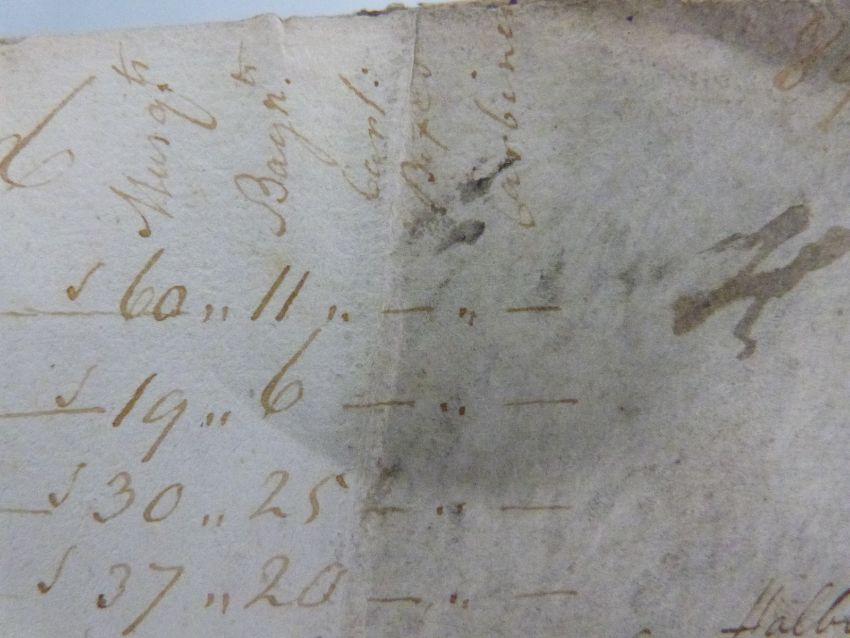 Musqts Bayn.ts Cart: Boxes Carbines
60 ,, 11 ,, — ,, —
19 ,, 6 — ,, —
30 ,, 25 — ,, —
37 ,, 20 — ,, —